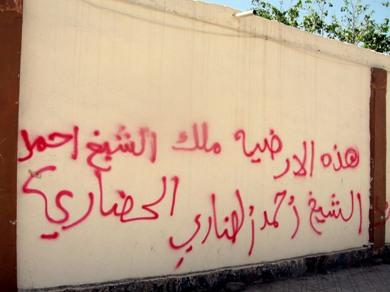 هذه الارضيه ملك الشيخ احمد
الشيخ أحمد الضاري الحضاري